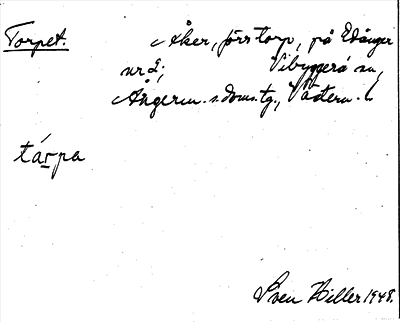 Torpet. Åker, förr torp, på Edånger
nr 2; Vibyggerå sn,
Ångerm. s. doms.tg., Västern. l.
tárpa
Sven Hiller 1948.